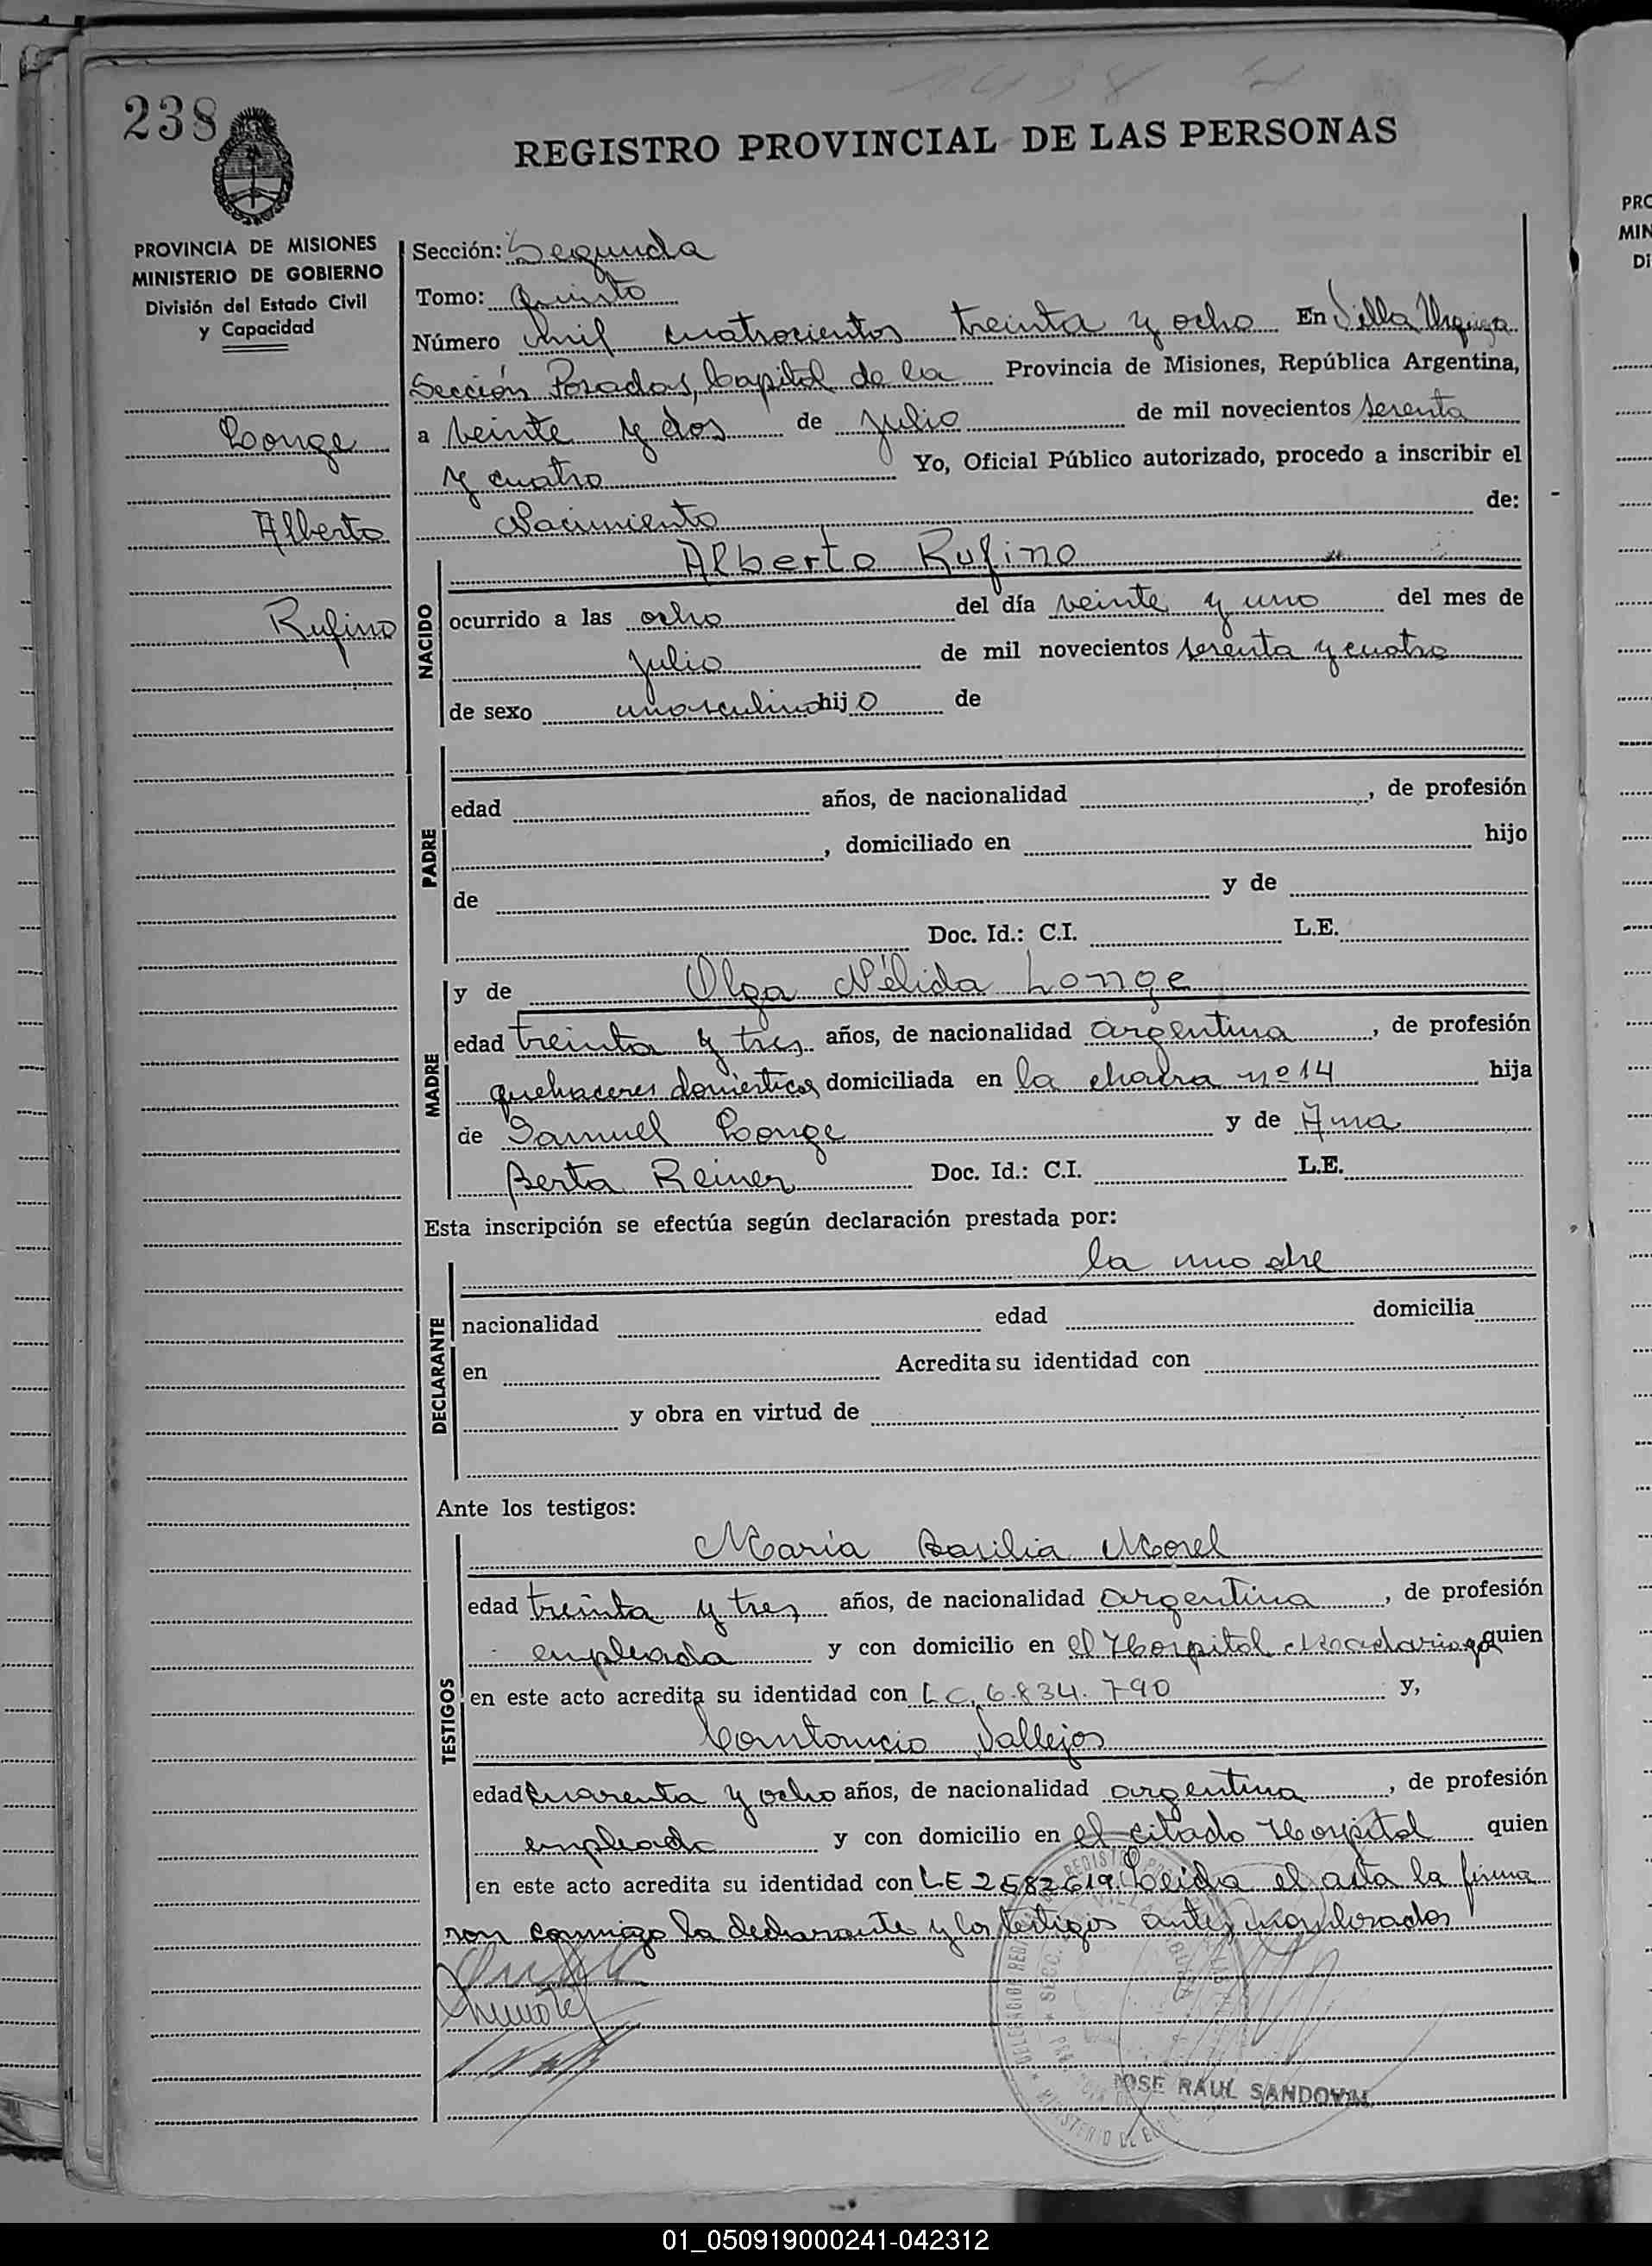 1438
238
REGISTRO PROVINCIAL DE LAS PERSONAS
PROVINCIA DE MISIONES
MINISTERIO DE GOBIERNO
División del Estado Civil
y Capacidad
Longe
Alberto
Rufino
Sección: Segunda
Tomo: Quinto
Número mil cuatrocientos treinta y ocho En Villa Urquiza
Sección Posadas, Capital de la Provincia de Misiones, República Argentina,
a veinte y dos de julio de mil novecientos sesenta
y cuatro Yo, Oficial Público autorizado, procedo a inscribir el
Nacimiento de:
NACIDO
Alberto Rufino
ocurrido a las ocho del día veinte y uno del mes de
julio de mil novecientos sesenta y cuatro
de sexo masculino hijo de
PADRE
edad años, de nacionalidad , de profesión
, domiciliado en hijo
de y de
Doc. Id.: C.I. L.E.
MADRE
y de Olga Nélida Longe
edad treinta y tres años, de nacionalidad argentina , de profesión
quehaceres domésticos domiciliada en la chacra nº 14 hija
de Samuel Longe y de Ana
Berta Reiner Doc. Id.: C.I. L.E.
Esta inscripción se efectúa según declaración prestada por:
DECLARANTE
la madre
nacionalidad edad domicilia
en Acredita su identidad con
y obra en virtud de
Ante los testigos:
TESTIGOS
María Basilia Morel
edad treinta y tres años, de nacionalidad argentina , de profesión
empleada y con domicilio en el Hospital Madariaga quien
en este acto acredita su identidad con LC. 6.834.790 y,
Vallejos
edad cuarenta y ocho años, de nacionalidad argentina , de profesión
empleado y con domicilio en el citado Hospital quien
en este acto acredita su identidad con LE 2582619. Leida el acta la firma
ron conmigo la declarante y los testigos antes nombrados
JOSE RAUL SANDOVAL
PRO
MIN
Di
01_050919000241-042312